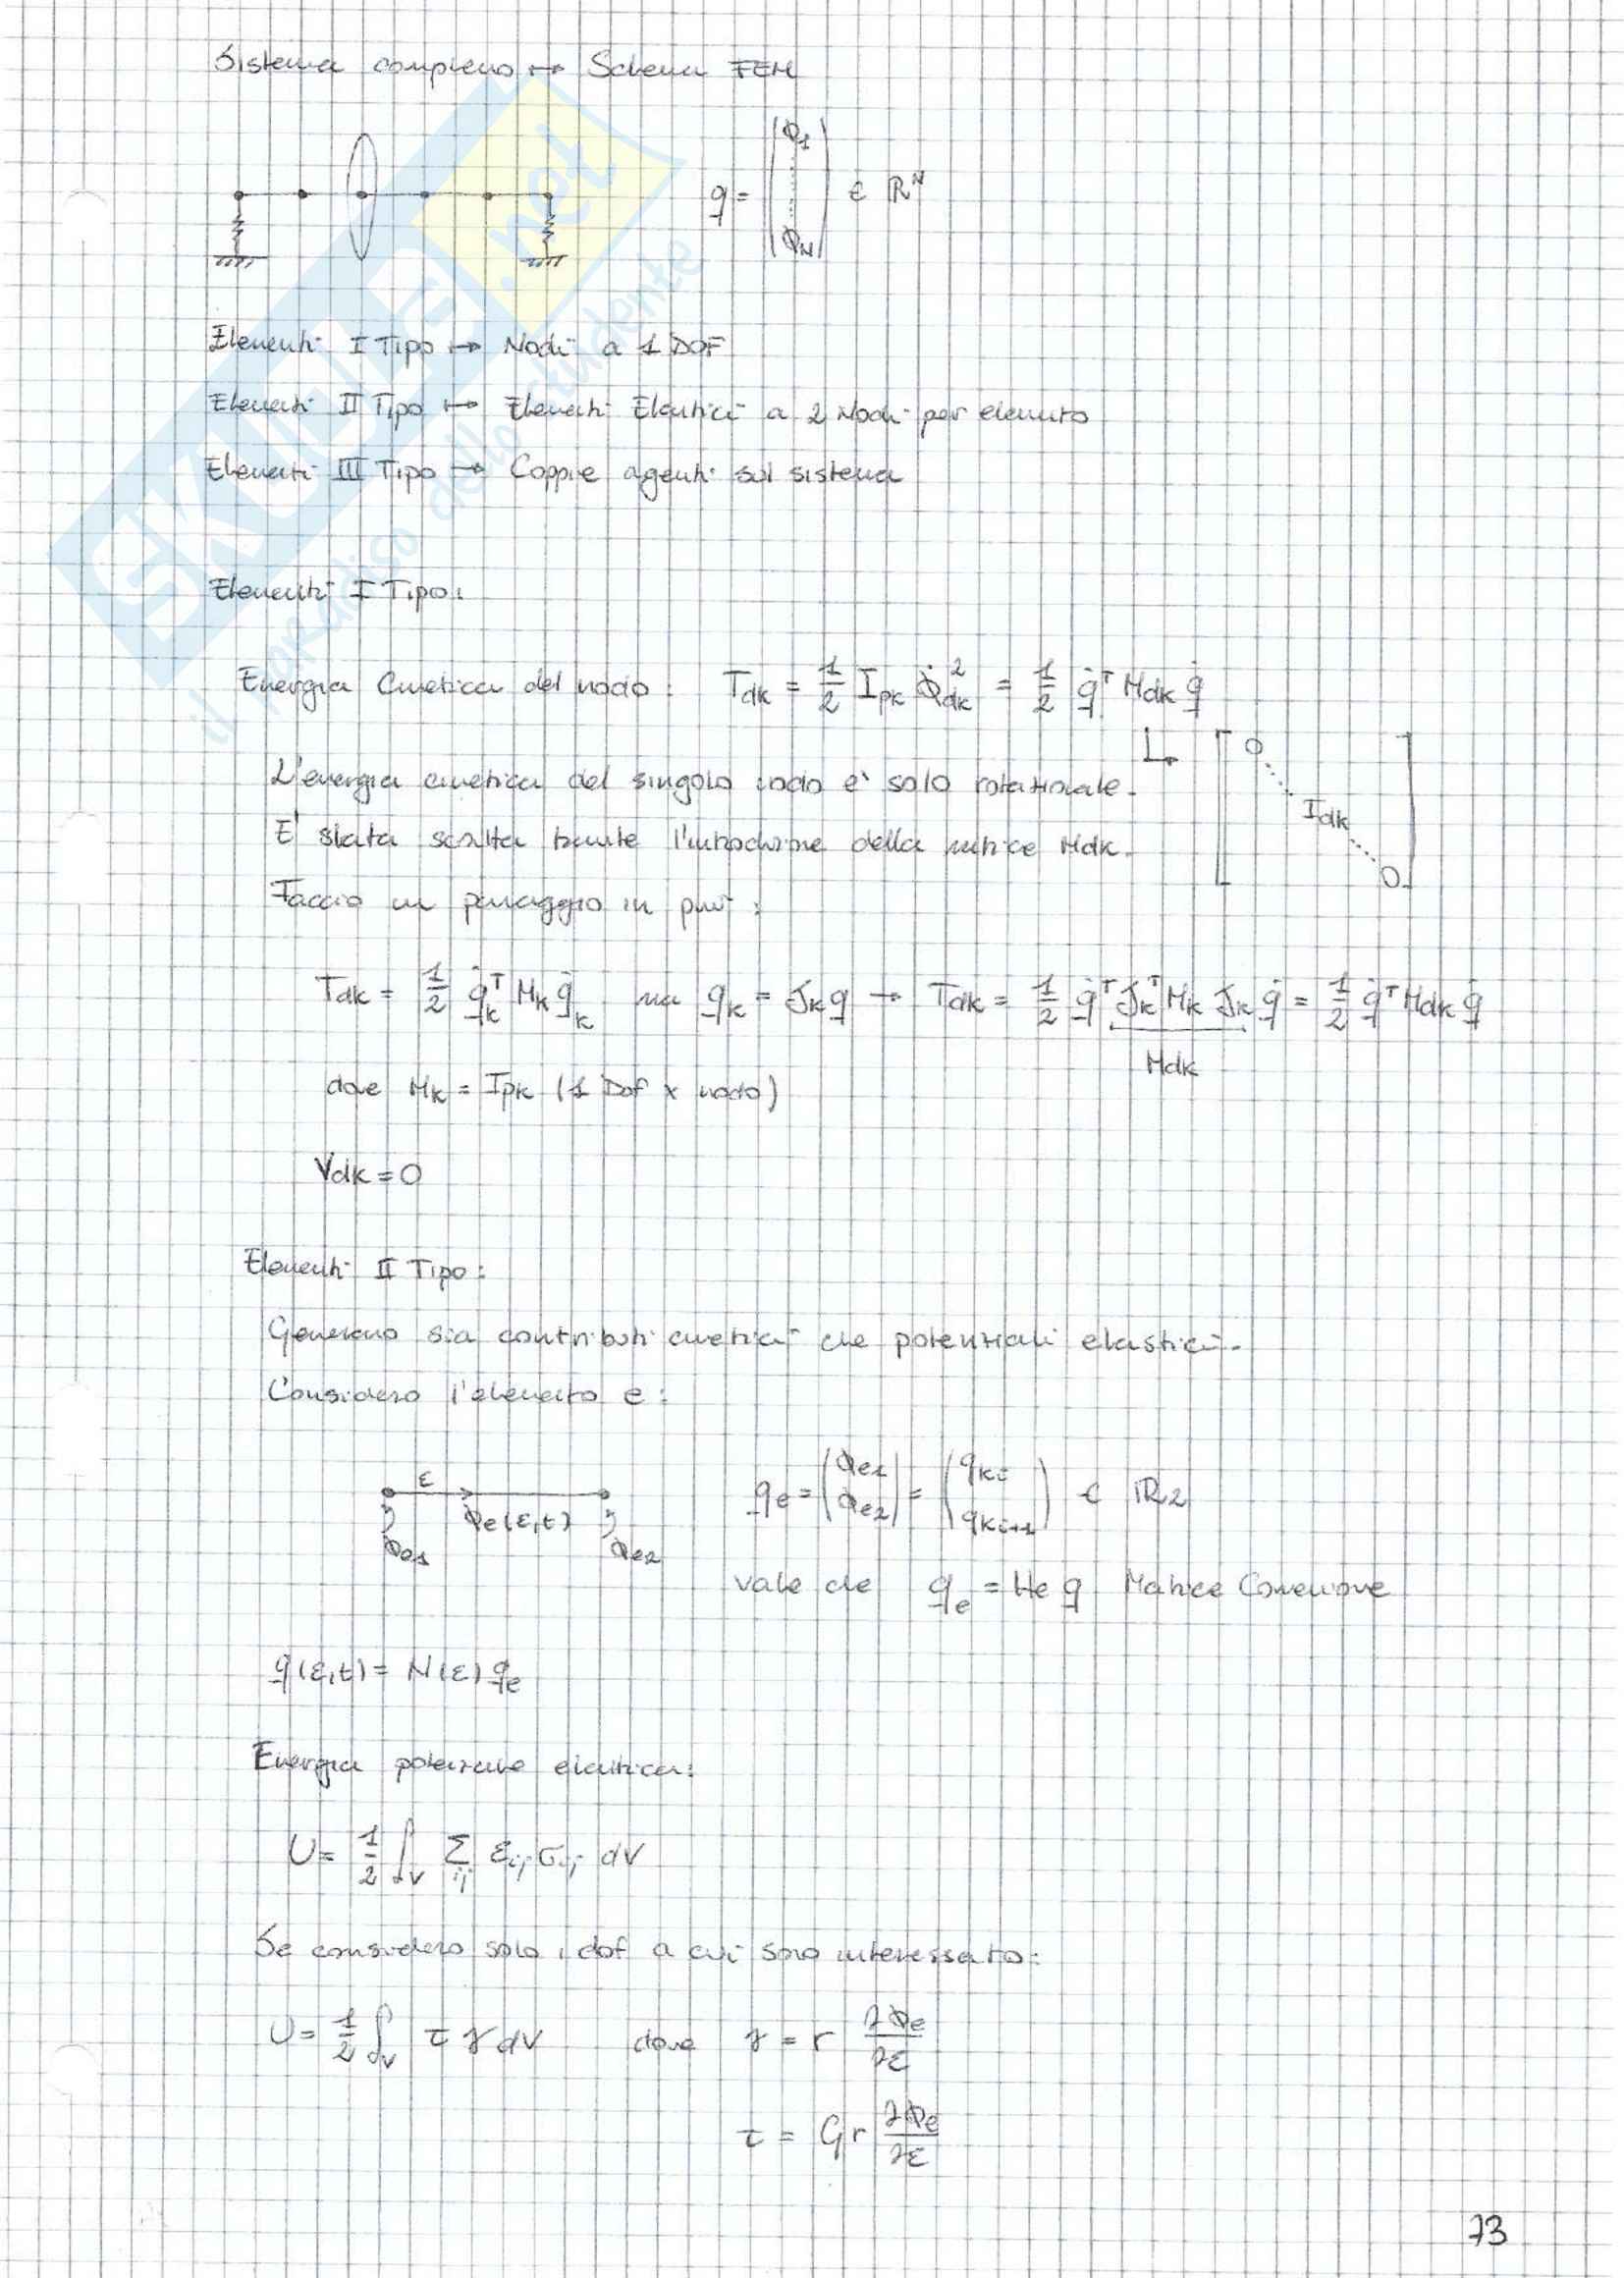 Sistema complesso ↦ Schema FEM
q = (Φ1 ⋮ ΦN) ∈ ℝ^N
Elementi I Tipo ↦ Nodi a 1 DOF
Elementi II Tipo ↦ Elementi Elastici a 2 Nodi per elemento
Elementi III Tipo ↦ Coppie agenti sul sistema
Elementi I Tipo:
Energia Cinetica del nodo: Tdk = 1/2 Ipk Φ̇dk² = 1/2 q̇ᵀ Mdk q̇
↳ [0 ⋱ Idk ⋱ 0]
L'energia cinetica del singolo nodo è solo rotazionale.
E' stata scritta tramite l'introduzione della matrice Mdk.
Faccio un passaggio in più:
Tdk = 1/2 q̇kᵀ Mk q̇k ma qk = Jk q → Tdk = 1/2 q̇ᵀ Jkᵀ Mk Jk q̇ = 1/2 q̇ᵀ Mdk q̇
Mdk
dove Mk = Ipk (1 Dof x nodo)
Vdk = 0
Elementi II Tipo:
Generano sia contributi cinetici che potenziali elastici.
Considero l'elemento e:
ε
Φe(ε,t)
Φe1 Φe2
qe = (Φe1 Φe2) = (qki qki+1) ∈ ℝ2
Vale che qe = He q Matrice Connessione
q(ε,t) = N(ε) qe
Energia potenziale elastica:
U = 1/2 ∫V Σij εij σij dV
Se considero solo i dof a cui sono interessato:
U = 1/2 ∫V τ γ dV dove γ = r ∂Φe/∂ε
τ = G r ∂Φe/∂ε
73
SKUOLA.net
il paradiso dello studente